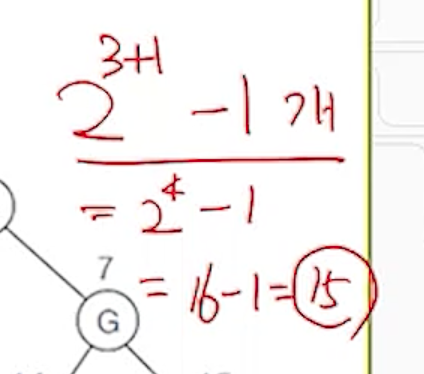 2^{3+1} - 1 개
= 2^4 - 1
7
= 16 - 1 = 15
G